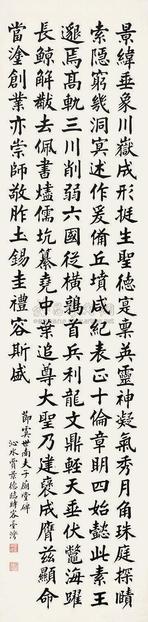 景緯垂象川嶽成形挺生聖德寔稟英靈神凝氣秀月角珠庭探賾
索隱窮幾洞冥述作爰備丘墳咸紀表正十倫章明四始懿此素王
邈焉高軌三川削弱六國從橫鶉首兵利龍文鼎輕天垂伏鼈海躍
長鯨解黻去佩書燼儒坑纂堯中葉追尊大聖乃建褒成膺茲顯命
當塗創業亦崇師敬胙土錫圭禮容斯盛
節虞世南夫子廟堂碑
沁水賈景德臨時客臺灣